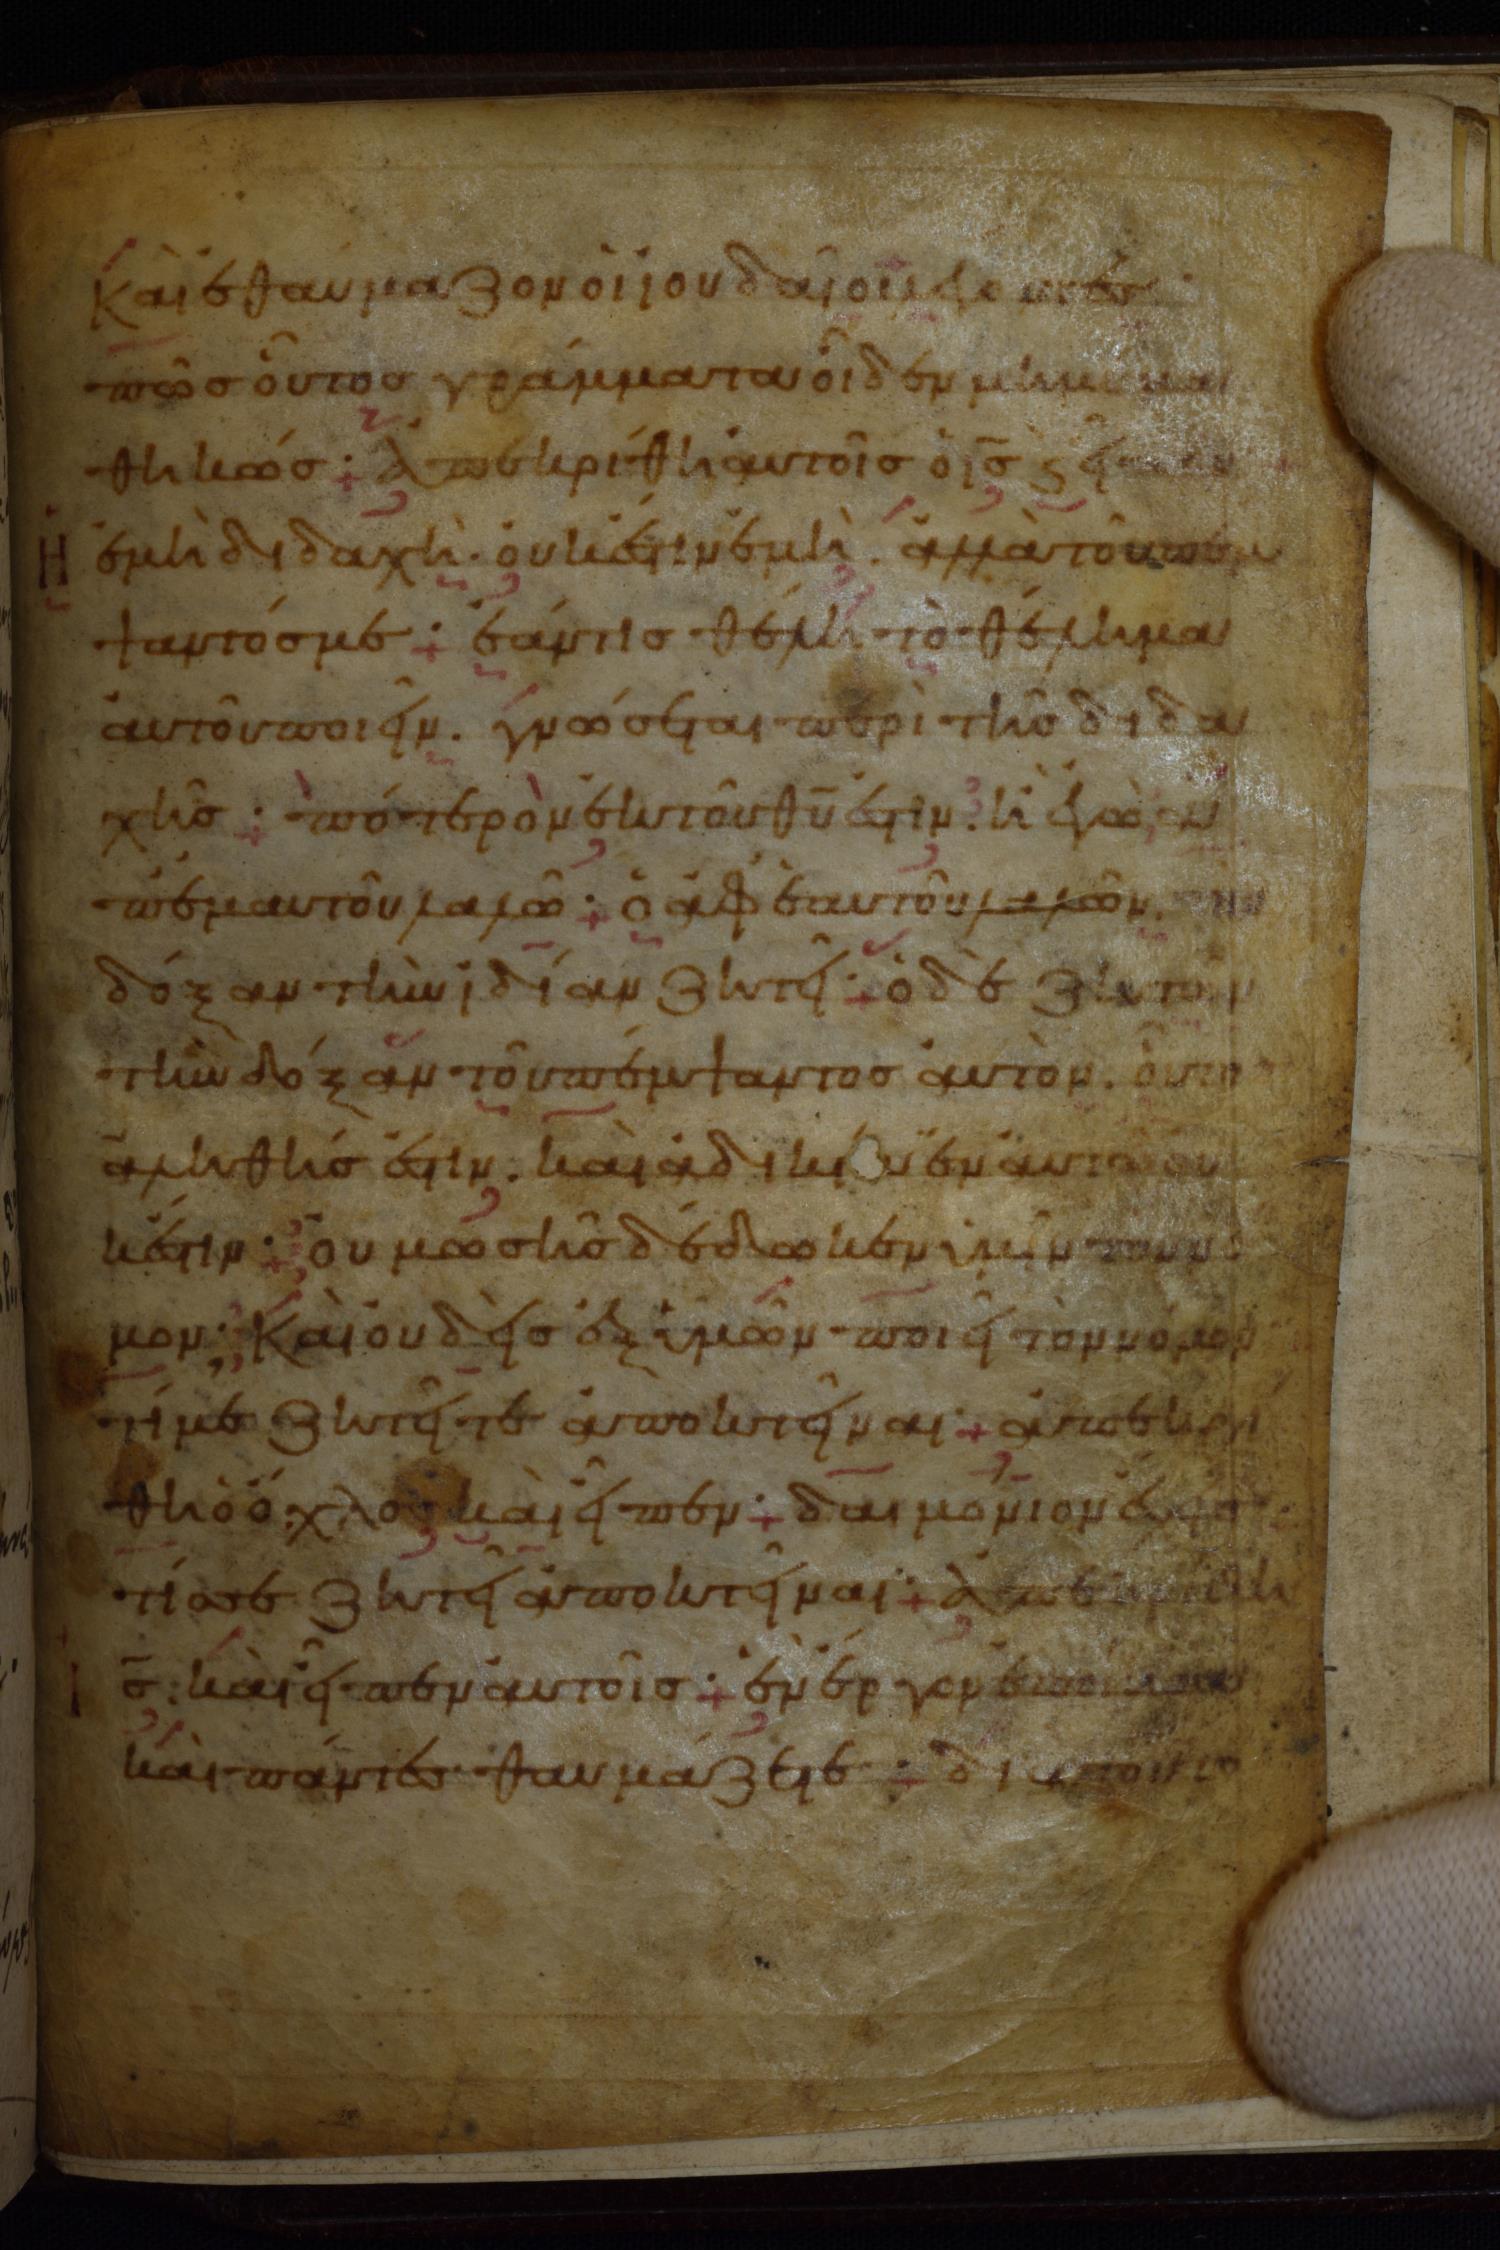 Καὶ ἐθαύμαζον οἱ ἰουδαῖοι λέγοντες·
πῶσ οὗτοσ γράμματα οἶδεν μὴ μεμα
θηκώσ· Ἀπεκρίθη αὐτοῖσ ὁ ις̅ ϛ εἶπεν
Η ἐμὴ διδαχὴ· οὐκ ἔστιν ἐμὴ. ἀλλὰ τοῦ πέμ
ψαντόσ με· ἐάν τισ θέλη τὸ θέλημα
αὐτοῦ ποιεῖν. γνώσεται περὶ τῆσ διδα
χῆσ· πότερὸν ἐκ τοῦ θυ̅ ἐστιν. ἢ ἐγὼ ἀπ
πἐμαυτοῦ λαλῶ· ὁ ἀφ ἑαυτοῦ λαλῶν. τὴν
δόξαν τὴν ἰδίαν ζητεῖ· ὁ δὲ ζητῶν
τὴν δόξαν τοῦ πέμψαντοσ αὐτὸν. οὗτο
ἀληθήσ ἐστιν. καὶ ἀδικία ἐν αὐτῶ οὐ
κ ἔστιν· Οὐ μωσῆσ δέδωκεν ὑμῖν τὸν νό
μον· Καὶ οὐδεὶσ ἐξ ὑμῶν ποιεῖ τὸν νόμον
τί με ζητεῖτε ἀποκτεῖναι· ἀπεκρί
θη ὁ ὄχλοσ καὶ εἶπεν· δαιμόνιον ἔχεισ·
τίσ σε ζητεῖ ἀποκτεῖναι· Ἀπεκρίθη
Ι ς̅· καὶ εἶπεν αὐτοῖσ· ἓν ἔργον ἐποίησα
καὶ πάντεσ θαυμάζετε· διὰ τοῦτο